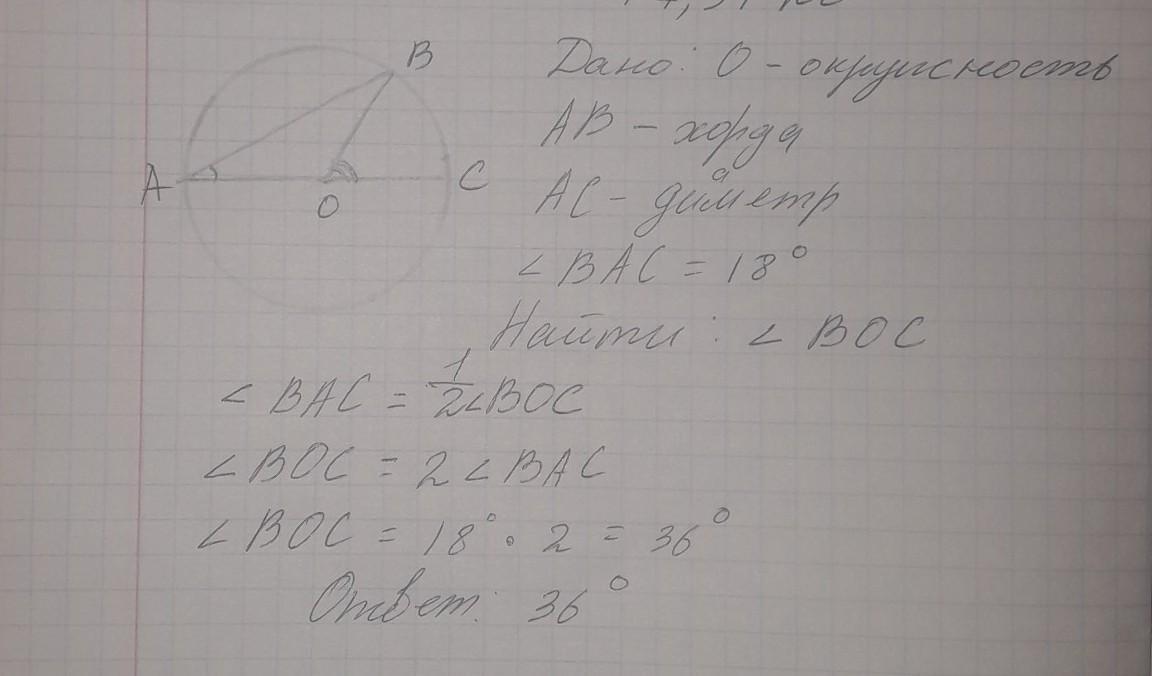 B
A
O
C
Дано: О - окружность
AB - хорда
AC - диаметр
∠BAC = 18°
Найти: ∠BOC
∠BAC = 1/2∠BOC
∠BOC = 2∠BAC
∠BOC = 18° · 2 = 36°
Ответ: 36°